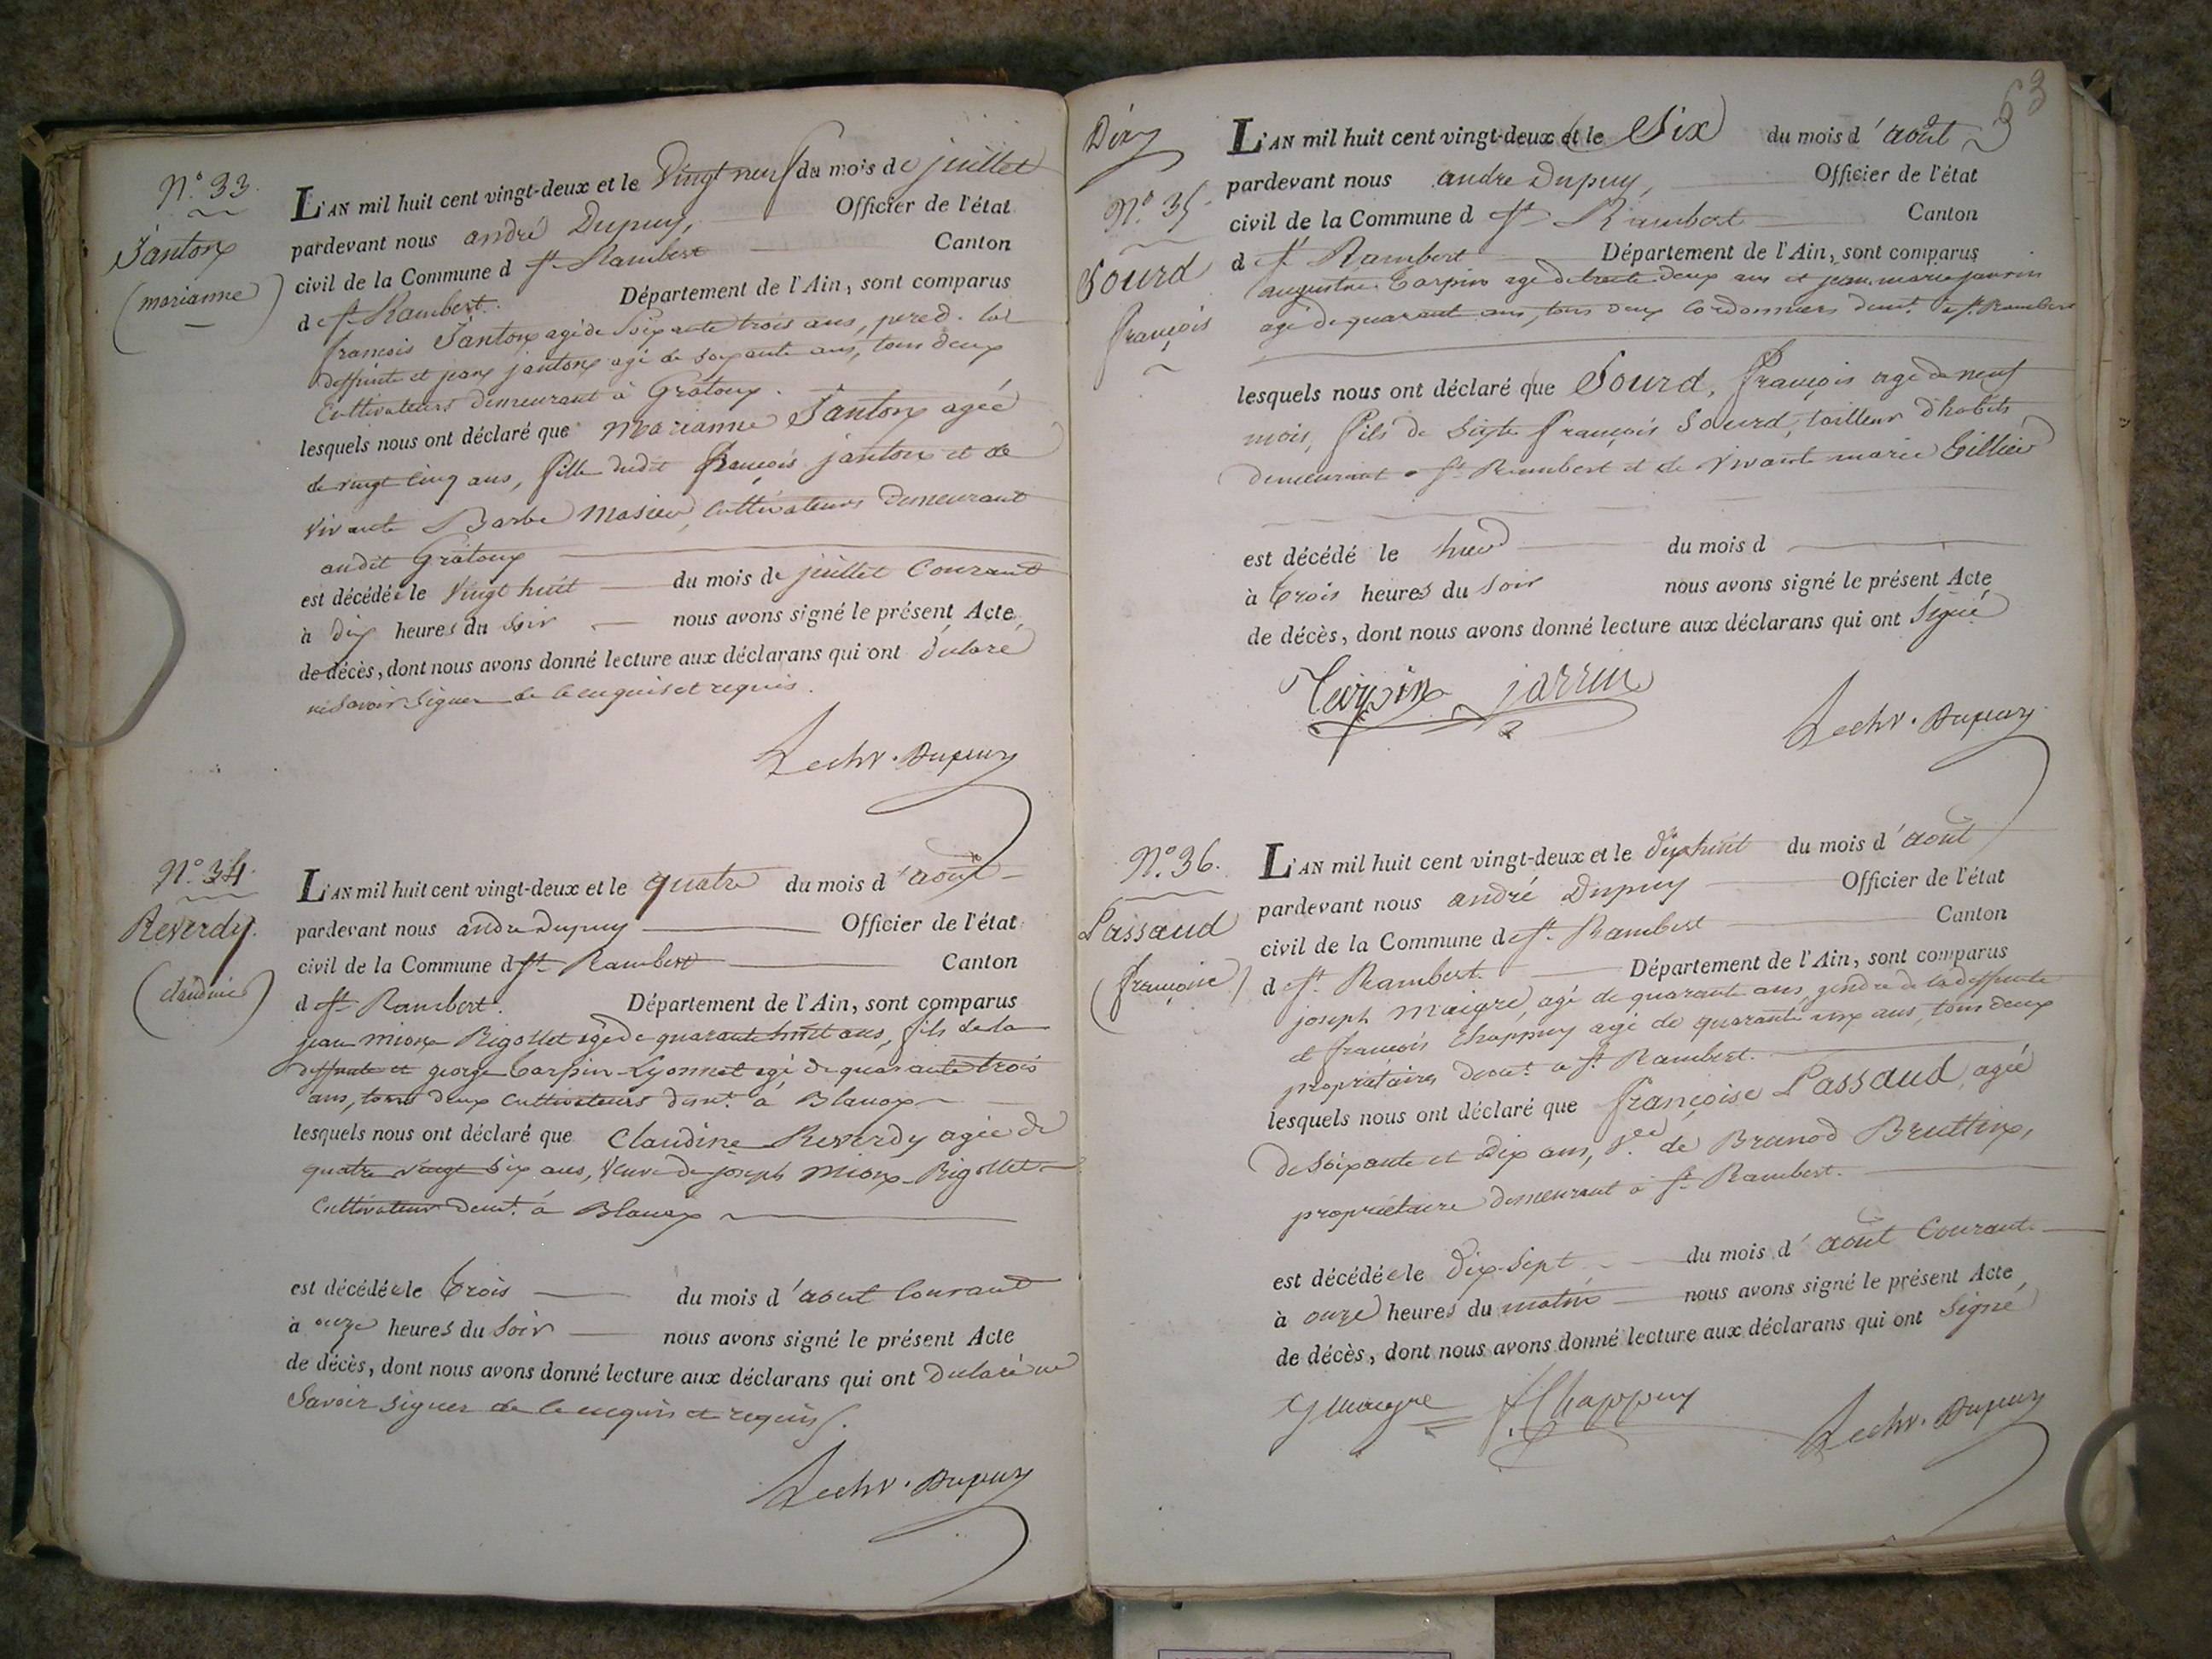 N.° 33.
Janton
(marianne)
L'AN mil huit cent vingt-deux et le Vingt neuf du mois de juillet
pardevant nous andré Dupuy, Officier de l'état
civil de la Commune d St. Rambert Canton
d St. Rambert. Département de l'Ain, sont comparus
francois Janton agé de Soixante trois ans, pere d. la
deffunte et janton agé de soixante ans, tous deux
Cultivateurs demeurant à Gratoux.
lesquels nous ont déclaré que Marianne Janton agée
de vingt cinq ans, fille dudit françois janton et de
vivante Barbe Masieu, Cultivateurs demeurant
audit Gratoux
est décédée le Vingt huit du mois de juillet Courant
à dix heures du Soir nous avons signé le présent Acte
de décès, dont nous avons donné lecture aux déclarans qui ont déclaré
ne Savoir Signer de ce enquis et requis.
Lechr. Dupuy
N.° 34.
Reverdy.
(claudine)
L'AN mil huit cent vingt-deux et le quatre du mois d'août
pardevant nous andre Dupuy Officier de l'état
civil de la Commune d St. Rambert Canton
d St. Rambert. Département de l'Ain, sont comparus
jean mioux Rigollet agé de quarante huit ans, fils de la
deffunte et george Carpin-Lyonnet agé de quarante trois
ans, tous deux Cultivateurs demt. à Blanaz
lesquels nous ont déclaré que Claudine Reverdy agée de
quatre vingt Six ans, Veuve de joseph Mioux-Rigollet
Cultivateur demt. à Blanaz
est décédée le trois du mois d'aout Courant
à onze heures du Soir nous avons signé le présent Acte
de décès, dont nous avons donné lecture aux déclarans qui ont declaré ne
Savoir Signer de ce enquis et requis.
Lechr. Dupuy
63
N.° 35
Sourd
françois
L'AN mil huit cent vingt-deux et le Six du mois d'août
pardevant nous andre Dupuy, Officier de l'état
civil de la Commune d St. Rambert Canton
d St. Rambert Département de l'Ain, sont comparus
augustin Carpin agé de trente deux ans et jean marie jarrin
agé de quarante ans, tous deux Cordonniers demt. à St. Rambert
lesquels nous ont déclaré que Sourd, François agé de neuf
mois, fils de Sixte François Sourd, tailleur d'habits
demeurant à St. Rambert et de vivante marie Gillier
est décédé le hier du mois d
à trois heures du Soir nous avons signé le présent Acte
de décès, dont nous avons donné lecture aux déclarans qui ont Signé
Carpin jarrin
Lechr. Dupuy
N.° 36.
Passaud
(françoise)
L'AN mil huit cent vingt-deux et le dix huit du mois d'août
pardevant nous andré Dupuy Officier de l'état
civil de la Commune d St. Rambert Canton
d St. Rambert. Département de l'Ain, sont comparus
joseph Maigre, agé de quarante ans, gendre de la deffunte
et françois Chappuy agé de quarante ans, tous deux
propriétaires demt. à St. Rambert.
lesquels nous ont déclaré que françoise Passaud, agée
de Soixante et dix ans, Vee. de Brunod Bruttin,
propriétaire demeurant à St. Rambert.
est décédée le Dix-Sept du mois d'août Courant
à onze heures du matin nous avons signé le présent Acte
de décès, dont nous avons donné lecture aux déclarans qui ont Signé
J Maigre F. Chappuy
Lechr. Dupuy